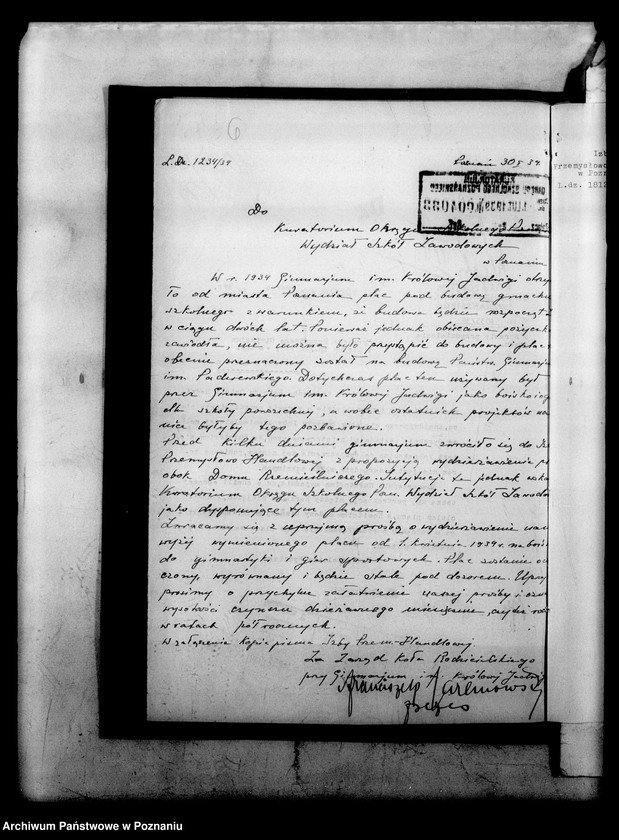 6
L.Dz. 1234/34
Poznań 30/3 34.
KURATORIUM
OKRĘGU SZKOLNEGO POZNAŃSKIEGO
Izb
Przemysłowo
w Pozn
L.dz. 1812
Do
Kuratorium Okręgu Szkolnego
Wydział Szkół Zawodowych
w Poznaniu
W r. 1934 Gimnazjum im. Królowej Jadwigi otrzy
to od miasta Poznania plac pod budowę gmachu
szkolnego z warunkiem, że budowa będzie rozpoczęt
w ciągu dwóch lat. Ponieważ jednak obiecana pożyczk
zawiodła, nie można było przystąpić do budowy i plac
obecnie przeznaczony został na budowę Państw. Gimnazju
im. Paderewskiego. Dotychczas plac ten używany był
przez Gimnazjum im. Królowej Jadwigi jako boisko i
dla szkoły powszechnej, a wobec ostatnich projektów
nice byłyby tego pozbawione.
Przed kilku dniami gimnazjum zwróciło się do Iz
Przemysłowo Handlowej z propozycją wydzierżawienia pl
obok Domu Rzemieślniczego. Instytucja ta jednak wska
Kuratorium Okręgu Szkolnego Pozn. Wydział Szkół Zawodo
jako dysponujące tym placem.
Zwracamy się z uprzejmą prośbą o wydzierżawienie nam
wyżej wymienionego placu od 1. kwietnia 1939 r. na boisk
do gimnastyki i gier sportowych. Plac zostanie o
czony, wyrównany i będzie stale pod dozorem. Uprz
prosimy o przychylne załatwienie naszej prośby i ozn
wysokości czynszu dzierżawnego miesięcznie, czy też
w ratach półrocznych.
W załączeniu kopia pisma Izby Przem.-Handlowej
Za Zarząd Koła Rodzicielskiego
przy Gimnazjum im. Królowej Jadwigi
Franciszek
prezes
Archiwum Państwowe w Poznaniu